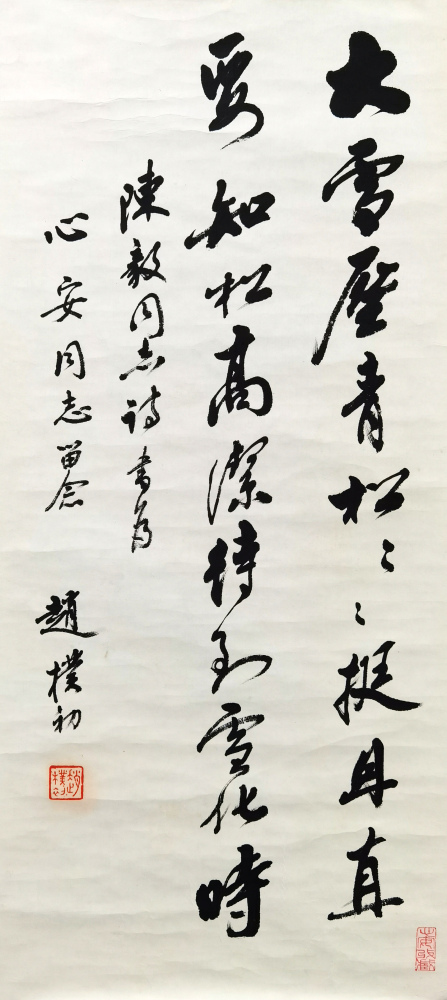 大雪壓青松〻〻挺且直
要知松高潔待到雪化時
陳毅同志詩書爲
心安同志留念
趙樸初
趙樸初